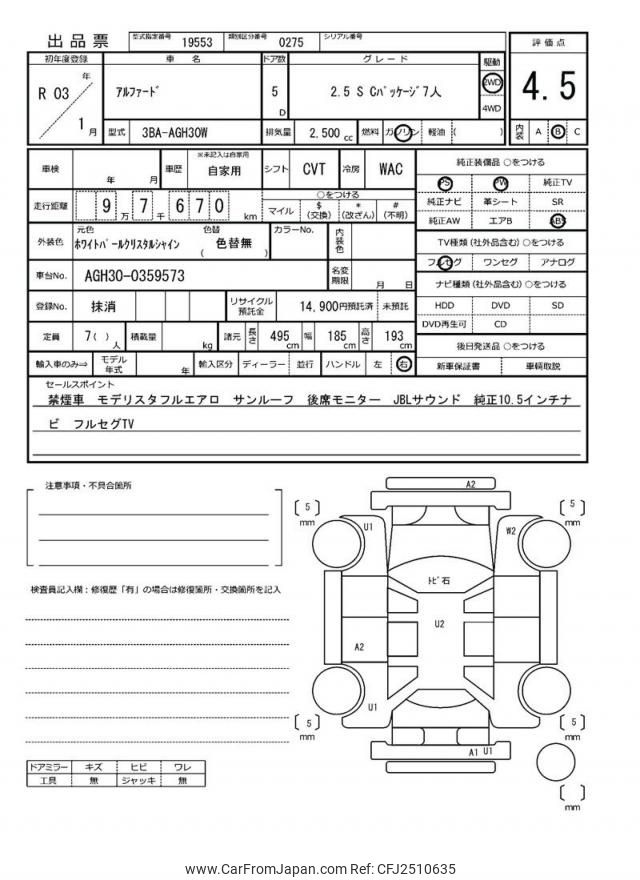 出品票 型式指定番号 19553 類別区分番号 0275 シリアル番号
初年度登録 車名 ドア数 グレード 駆動 評価点
R 03 年 1 月 アルファード 5 D 2.5 S Cパッケージ7人 2WD 4WD 4.5
型式 3BA-AGH30W 排気量 2,500 cc 燃料 ガソリン 軽油 ( ) 内装 A B C
車検 年 月 車歴 ※未記入は自家用 自家用 シフト CVT 冷房 WAC
純正装備品 ○をつける
PS PW 純正TV
走行距離 9 万 7 千 6 7 0 km ○をつける
マイル $ (交換) * (改ざん) # (不明)
純正ナビ 革シート SR
純正AW エアB ABS
外装色 元色 ホワイトパールクリスタルシャイン 色替 ( 色替無 ) カラーNo. 内装色
TV種類(社外品含む)○をつける
フルセグ ワンセグ アナログ
車台No. AGH30-0359573 名変期限 月 日
ナビ種類(社外品含む)○をつける
HDD DVD SD
DVD再生可 CD
登録No. 抹消 リサイクル預託金 14,900円預託済 未預託
定員 7( ) 人 積載量 kg 諸元 長さ 495 cm 幅 185 cm 高さ 193 cm
後日発送品 ○をつける
新車保証書 車輌取説
輸入車のみ⇒ モデル年式 年 輸入区分 ディーラー 並行 ハンドル 左 右
セールスポイント
禁煙車 モデリスタフルエアロ サンルーフ 後席モニター JBLサウンド 純正10.5インチナ
ビ フルセグTV
注意事項・不具合箇所
検査員記入欄:修復歴「有」の場合は修復箇所・交換箇所を記入
ドアミラー キズ ヒビ ワレ
工具 無 ジャッキ 無
A2
5 mm
5 mm
U1
W2
トビ石
U2
A2
U1
5 mm
5 mm
A1 U1
mm
www.CarFromJapan.com Ref: CFJ2510635